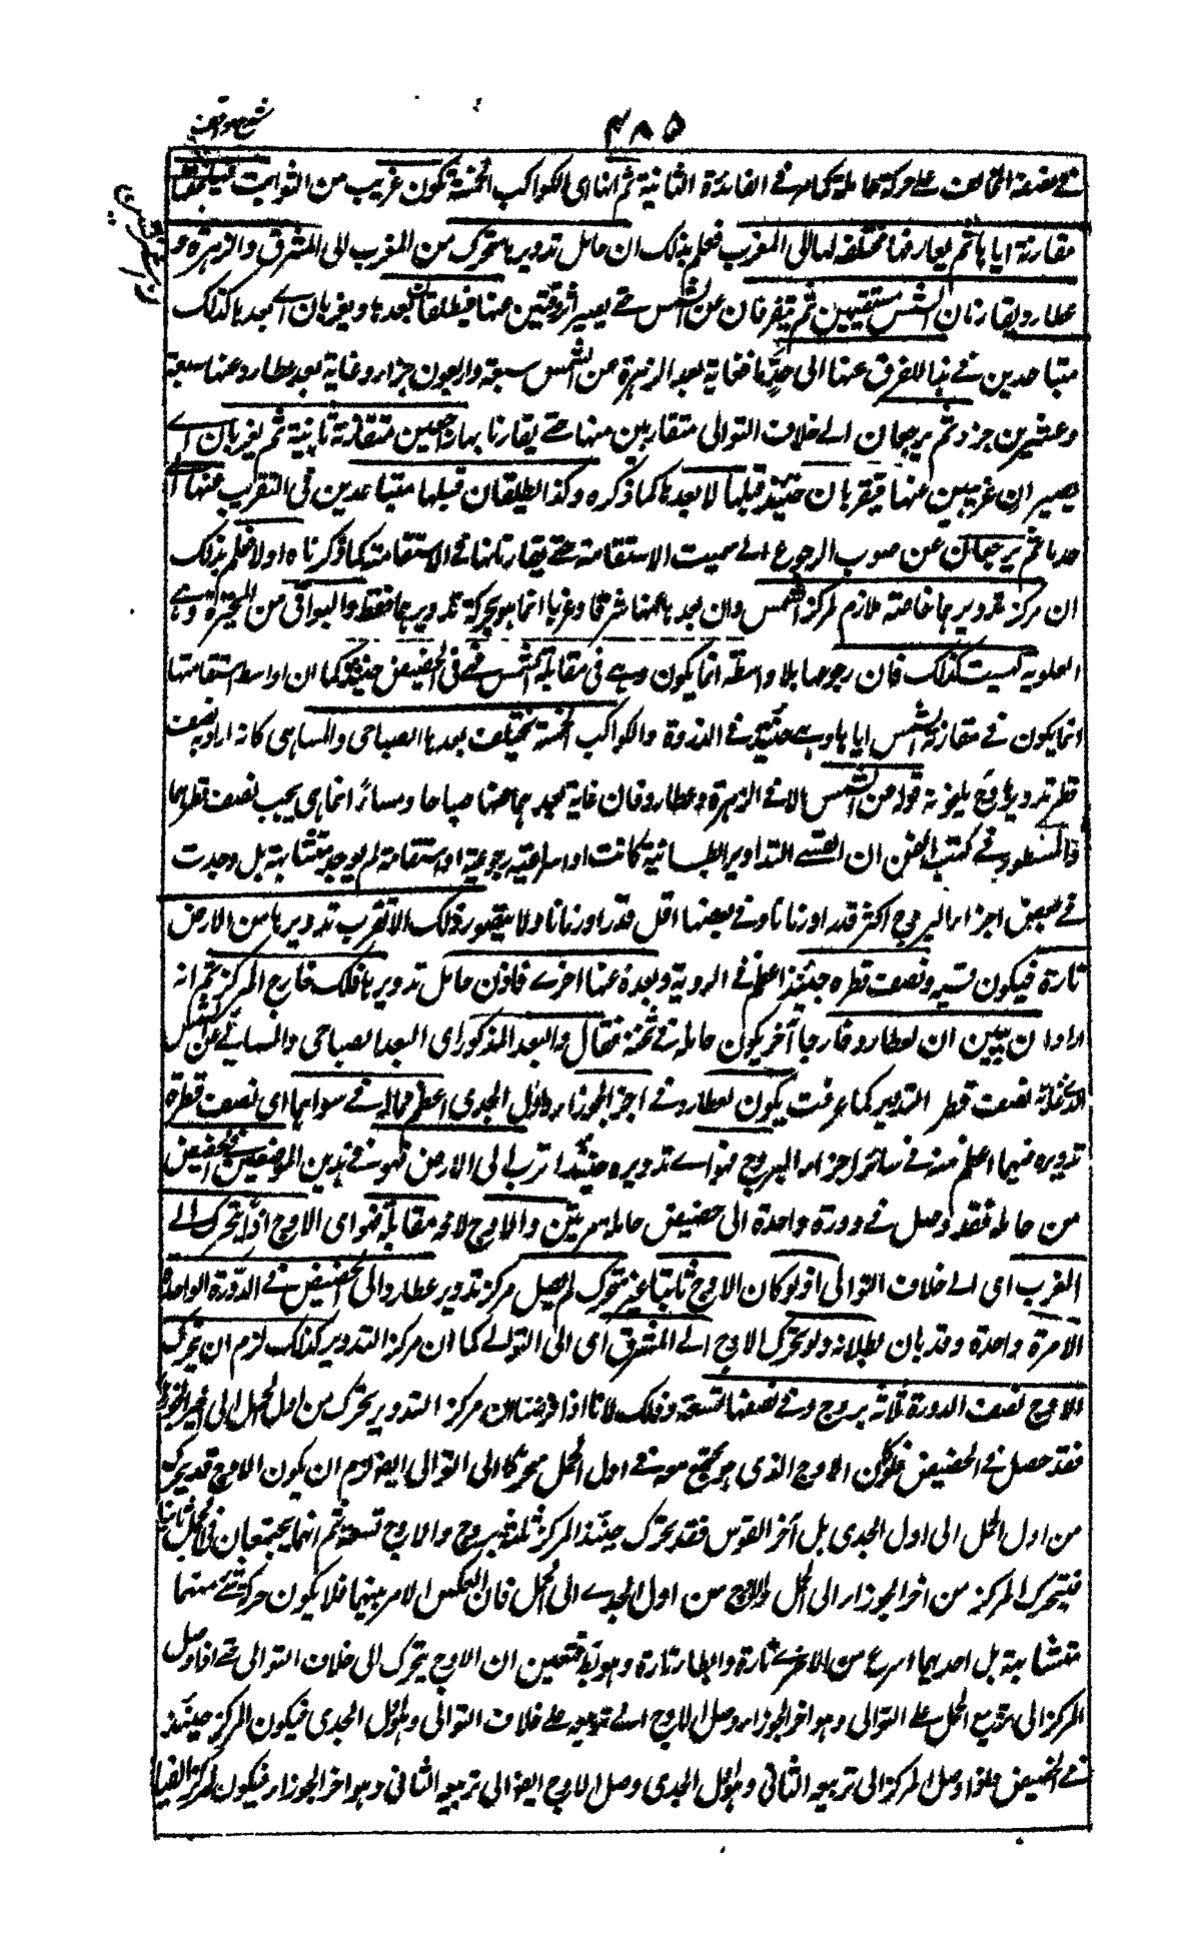 شرح مواقف
۴۸۵
في نصفه المخالف على حركة حامله كما مر في الفائدة الثانية ثم انا نرى الكواكب الخمسة تكون غريب من الثوابت فيلحقها
مقارنة اياها ثم يفارقها مختلفه لها الى المغرب فعلم بذلك ان حامل تدويرها متحرك من المغرب الى المشرق والزهرة و
عطارد يقارنان الشمس مستقيمين ثم يتفرقان عن الشمس حتى يصيرا شرقيتين عنها فيطلقان بعدها ويغربان اى بعدها كذلك
متباعدين في هذا التفرق عنها الى حد ما فغاية بعد الزهرة عن الشمس سبعة واربعون جزءا وغاية بعد عطارد عنها سبعة
وعشرين جزء ثم يرجعان الى خلاف التوالى متقاربين منها حتى يقارنا بها راجعين مقارنة ثانية ثم يغربان اى
يصيران غربيين عنها فيغربان حينئذ قبلها لا بعدها كما ذكره وكذا يطلقان قبلها متباعدين فى التغريب عنها الى
حد ما ثم يرجعان عن صوب الرجوع الى سمت الاستقامة حتى يقارنانها فى الاستقامة كما ذكرناه اولا فعلم بذلك
ان مركز تدويرها خاصته ملازم لمركز الشمس وان بعدهما عنها شرقا وغربا انما هو بحركة تدويرهما فقط والبواقى من المتحيرة وهى
العلوية ليست كذلك فان رجوعها بلا واسطة انما يكون وهى فى مقابلة الشمس فهى فى الحضيض حينئذ كما ان اواسط استقامتها
انما يكون فى مقارنة الشمس اياها وهى حينئذ فى الذروة والكواكب الخمسة تختلف بعدها الصباحى والمسائى كانه اراد به نصف
قطر تدويرها وح يلغو قوله من الشمس الا فى الزهرة وعطارد فان غاية بعدهما عنها صباحا ومساء انما هى بحسب نصف قطرهما
فالمسطور فى كتب الفن ان القسى التداويرالطسانية كانت اوساطيه رجوعية او استقامة لم يوجد متشابهة بل وجدت
فى بعض اجزاء البروج اكثر قدرا وزمانا وفى بعضها اقل قدرا وزمانا ولا يتصور ذلك الا لقرب تدويرها من الارض
تارة فيكون قسيه ونصف قطره حينئذ اعظم فى الروية وبعده عنها اخرى فاذن حامل تدويرها فلك خارج المركز ثم انه
اراد ان يبين ان لعطارد خارجا آخر يكون حامله فى ثخنه فقال والبعد المذكور اى البعد الصباحى والمسائى عن الشمس
نصف قطر التدوير كما عرفت يكون لعطارد فى آخر الجوزاء واول الجدى اعظم مما له فى سواهما اى نصف قطرة
تدويره فيهما اعظم منه فى سائر اجزاء البروج فهو اى تدويره حينئذ اقرب الى الارض فهو فى هذين الموضعين فى الحضيض
من حامله فقد وصل فى دورة واحدة الى حضيض حامله مرتين والاوج لا فى مقابلة فهو اى الاوج اذًا متحرك الى
المغرب اى الى خلاف التوالى اذ لو كان الاوج ثابتا غير متحرك لم يصل مركز تدوير عطارد الى الحضيض فى الدورة الواحدة
الا مرة واحدة وقد بان بطلانه ولو تحرك الاوج الى المشرق اى الى التوالى كما ان مركز التدوير كذلك لزم ان يتحرك
الاوج نصف الدورة ثلثة بروج وفى نصفها تسعة وذلك لانا اذا فرضنا ان مركز التدوير تحرك من اول الحمل الى آخر الجوزاء
فقد حصل فى الحضيض فلو كان الاوج الذى هو مجتمع معه فى اول الحمل متحركا الى التوالى ايضا لزم ان يكون الاوج قد تحرك
من اول الحمل الى اول الجدى بل آخر القوس فقد تحرك حينئذ المركز ثلثة بروج والاوج تسعة ثم انهما يجتمعان فى الحمل ثانيا
فيتحرك المركز من اخر الجوزاء الى الحمل والاوج من اول الجدى الى الحمل فان انعكس الامر بينهما فلا يكون حركة شئ منهما
متشابهة بل احدهما اسرع من الاخرى تارة وابطأ تارة وهو بط فتعين ان الاوج يتحرك الى خلاف التوالى حتى اذا وصل
المركز الى تربيع الحمل على التوالى وهو اخر الجوزاء وصل الاوج الى تربيعه على خلاف التوالى وهو اول الجدى فيكون المركز حينئذ
فى الحضيض واذا وصل المركز الى تربيعه الثانى وهو اول الجدى وصل الاوج ايضا الى تربيعه الثانى وهو اخر الجوزاء فيكون المركز ايضا